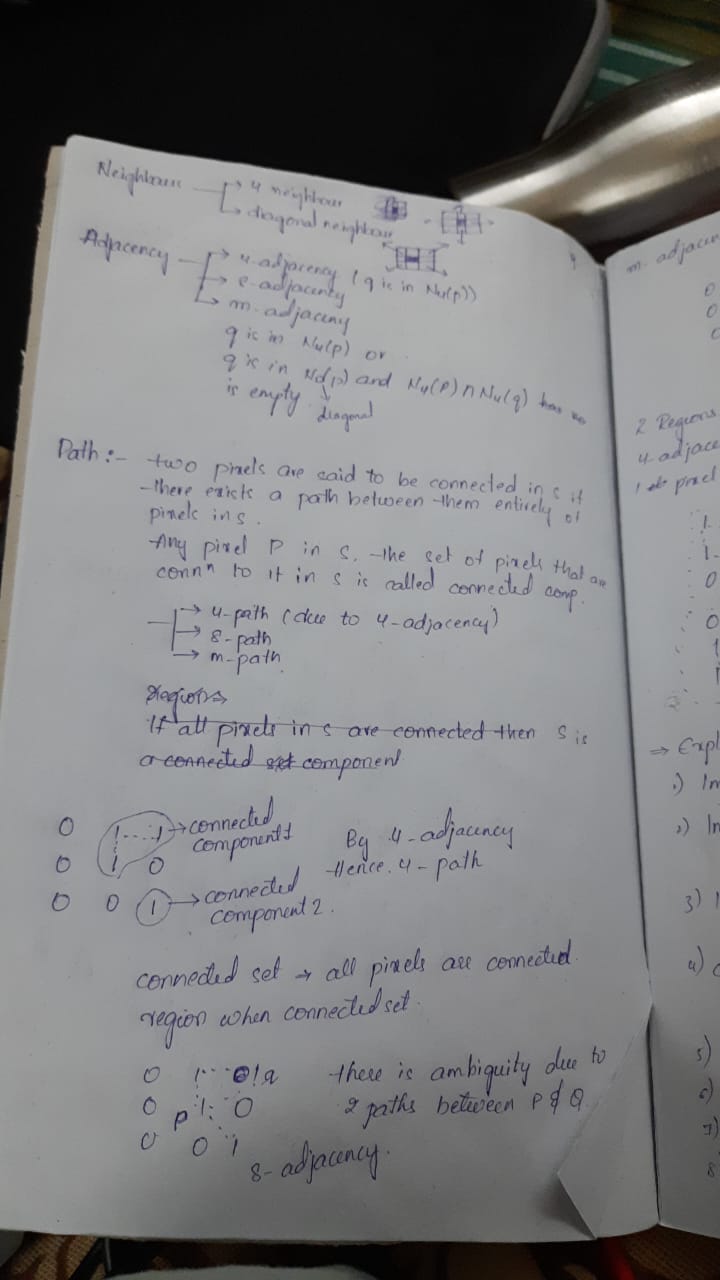 Neighbours → 4 neighbour
→ diagonal neighbour
Adjacency → 4-adjacency (q is in N4(p))
→ 8-adjacency
→ m-adjaceny
q is in N4(p) or
q is in Nd(p) and N4(P) ∩ N4(q) has no
is empty diagonal
Path :- two pixels are said to be connected in s if
there exists a path between them entirely of
pixels in s.
Any pixel P in S. the set of pixels that are
connⁿ to it in s is called connected comp.
→ 4-path (due to 4-adjacency)
→ 8-path
→ m-path
Regions
If all pixels in s are connected then S is
a connected set component
0 1....1 → connected
component 1
0 1 0
By 4-adjacency
Hence. 4-path
0 0 1 → connected
component 2.
connected set → all pixels are connected
region when connected set.
0 1...1 q there is ambiguity due to
0 P 1 0 2 paths between P & Q
0 0 1
8-adjacency.
m. adjacen
0
0
2 Regions
4-adjace
pixel
1.
1.
0
0
1
⇒ Expl
1) Im
2) In
3)
4)
5)
6)
7)
8